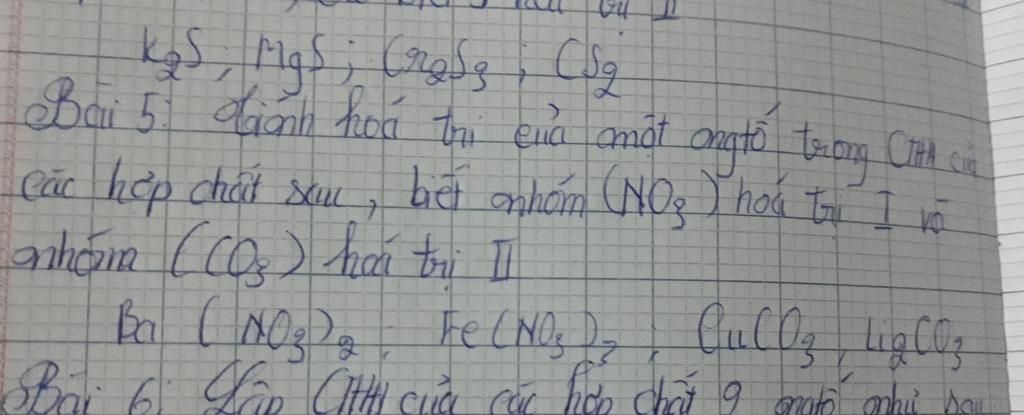 hoá trị II
K2S; MgS; Cr2S3; CS2
Bài 5: Tính hoá trị của một ngtố trong CTHH của
các hợp chất sau, biết nhóm (NO3) hoá trị I và
nhóm (CO3) hoá trị II
Ba(NO3)2, Fe(NO3)3, CuCO3, Li2CO3
Bài 6: Lập CTHH của các hợp chất 2 ngtố như sau